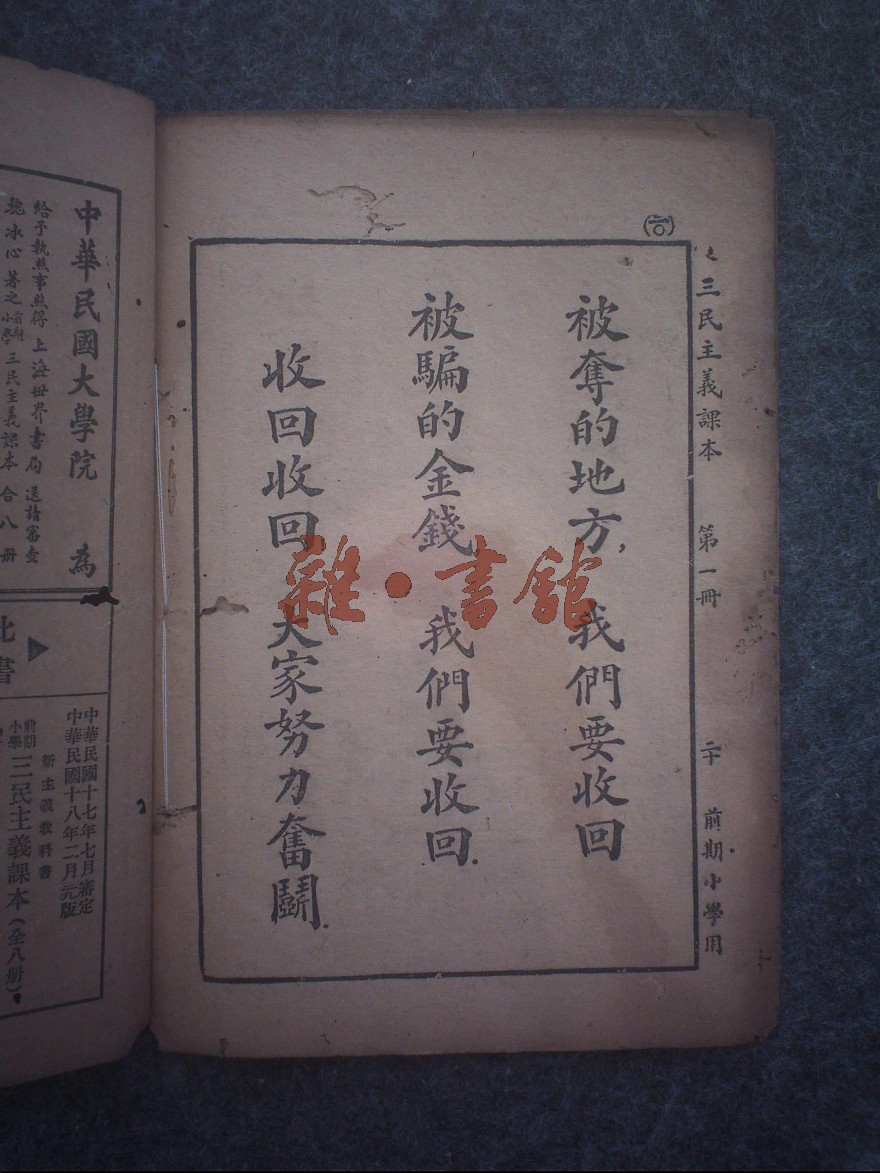 (二〇)
三民主義課本 第一冊 二十 前期小學用
被奪的地方,我們要收回
被騙的金錢 我們要收回.
收回收回 大家努力奮鬭.
雜·書館
中華民國大學院 為
給予執照事照得上海世界書局送請審查
魏冰心著之前期小學三民主義課本合八冊
此書
中華民國十七年七月審定
中華民國十八年二月元版
新主義教科書
前期小學三民主義課本(全八冊)